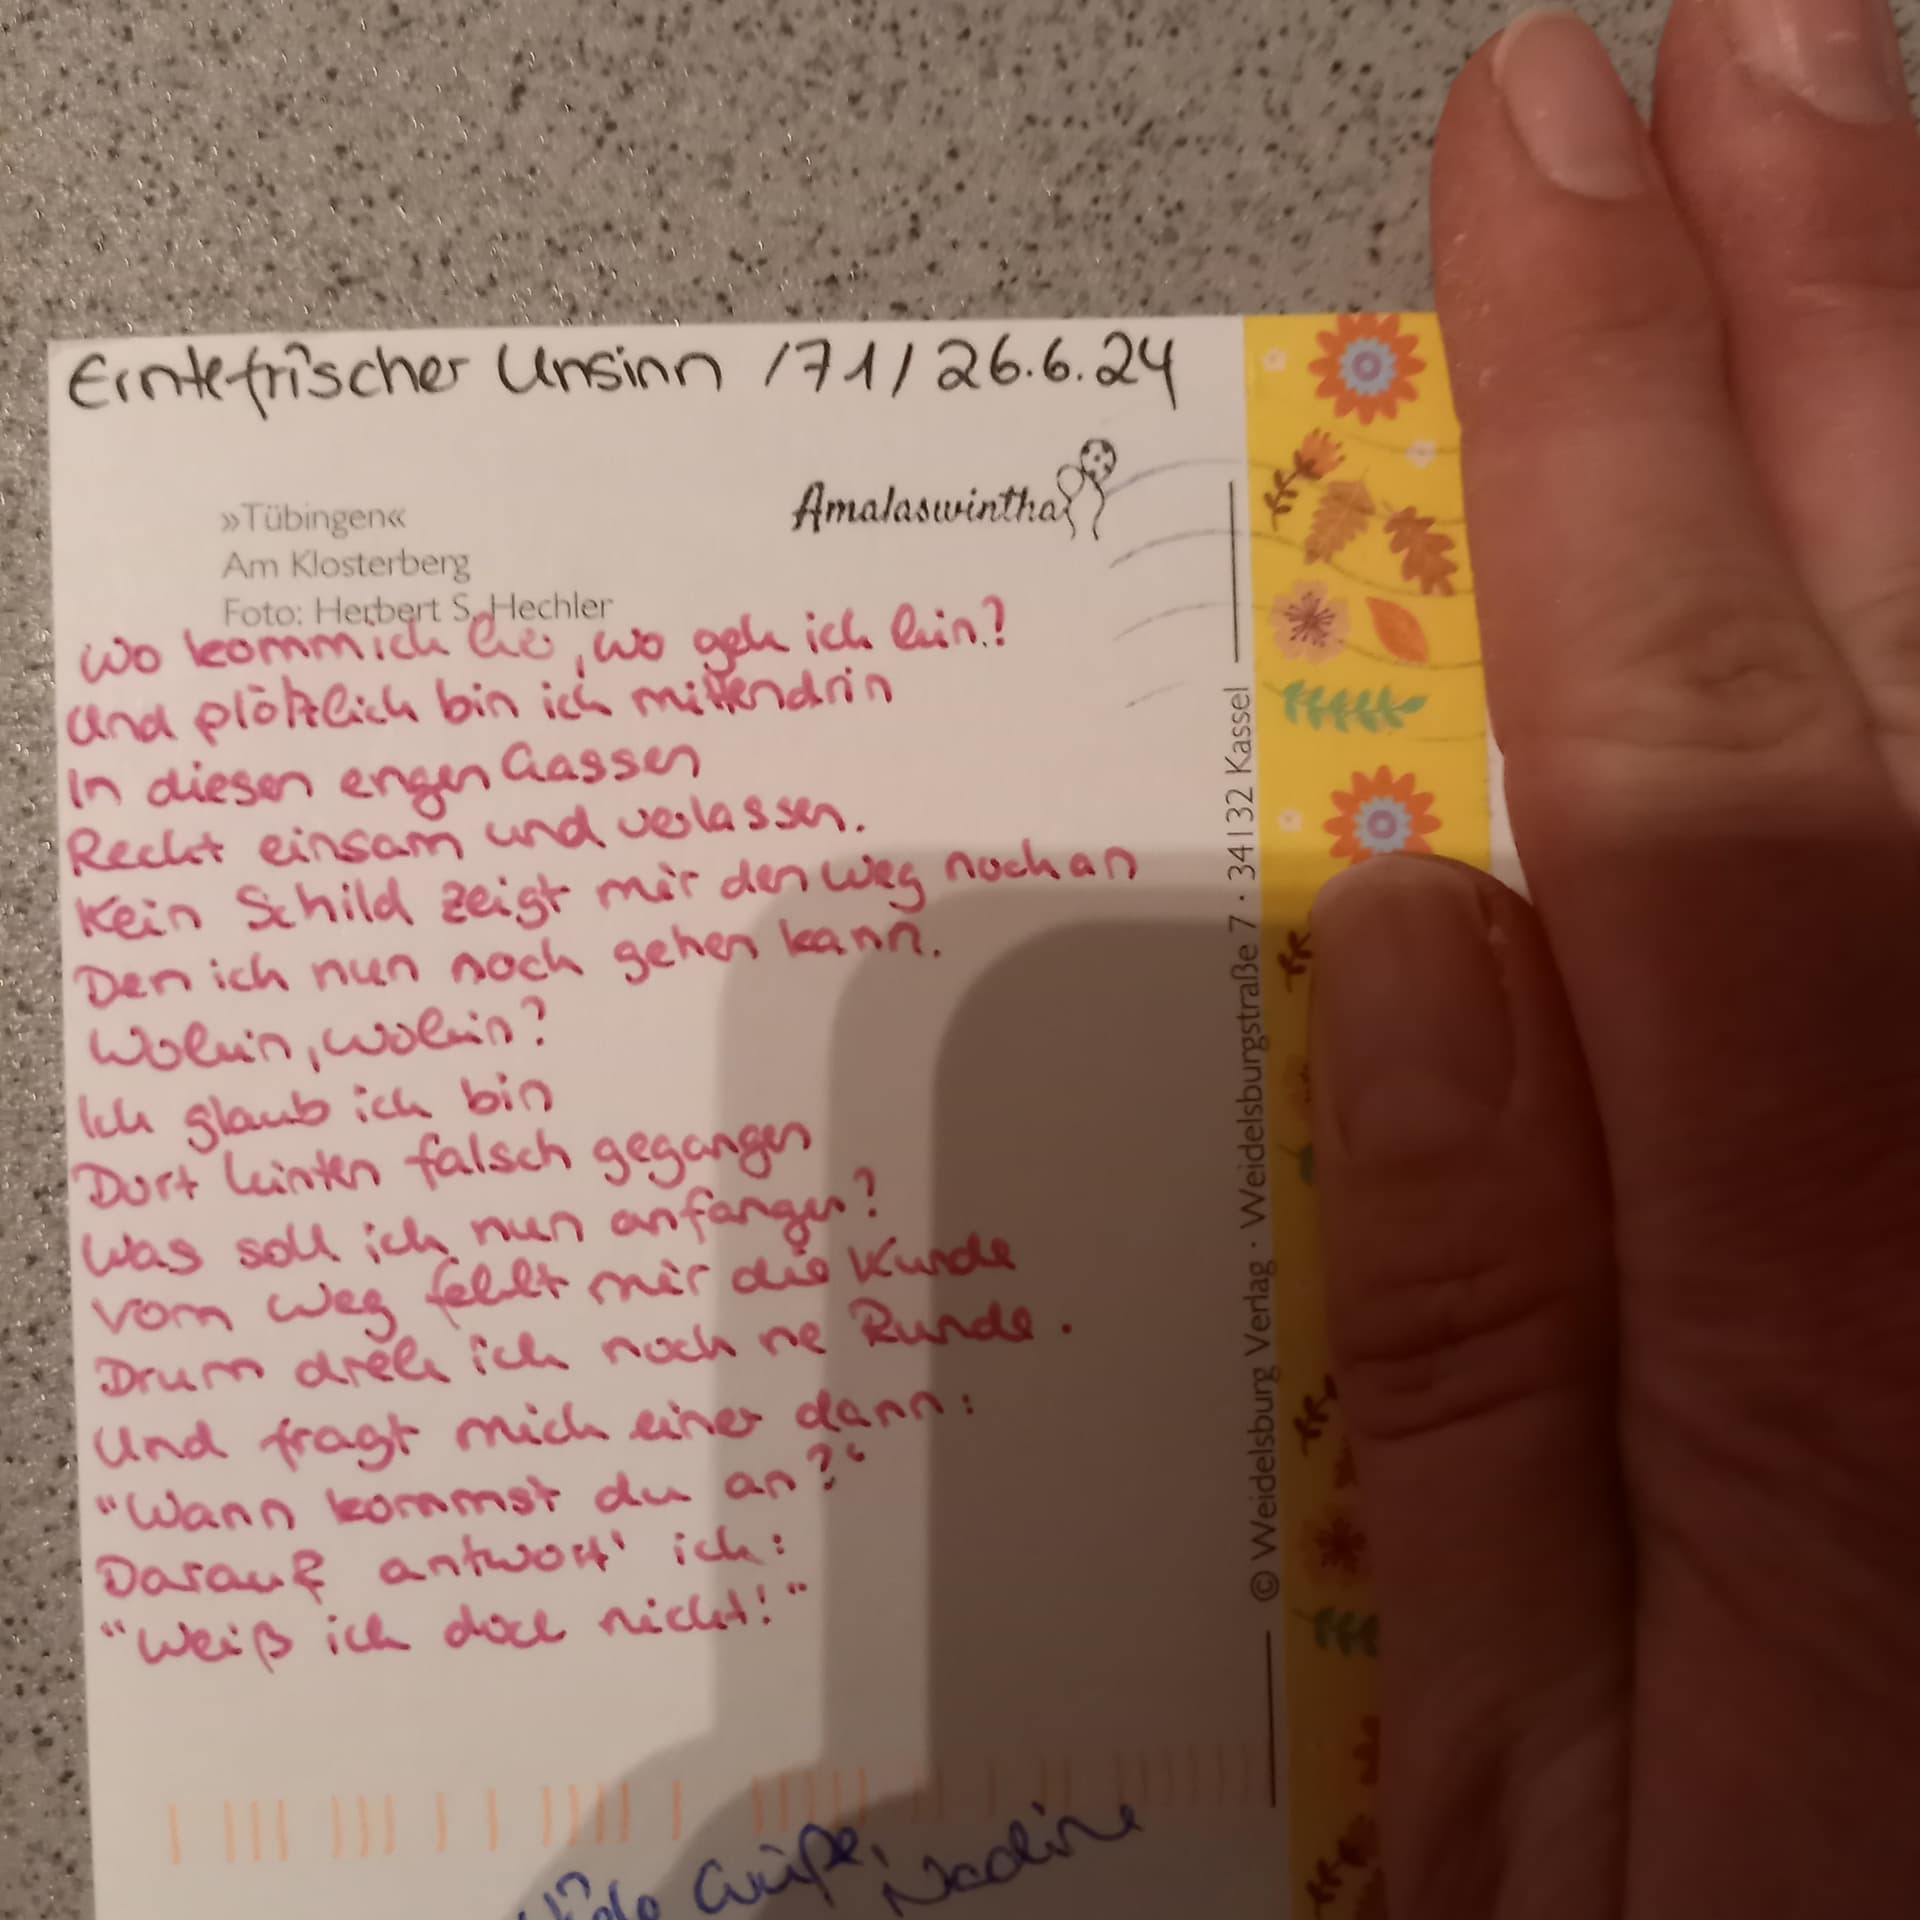 Erntefrischer Unsinn /71/ 26.6.24
»Tübingen«
Am Klosterberg
Foto: Herbert S. Hechler
Amalaswintha
Wo komm ich her, wo geh ich hin?
Und plötzlich bin ich mittendrin
In diesen engen Gassen
Recht einsam und verlassen.
Kein Schild zeigt mir den Weg noch an
Den ich nun noch gehen kann.
Wohin, wohin?
Ich glaub ich bin
Dort hinten falsch gegangen
Was soll ich nun anfangen?
Vom Weg fehlt mir die Kunde
Drum dreh ich noch ne Runde.
Und fragt mich einer dann:
"Wann kommst du an?"
Darauf antwort' ich:
"Weiß ich doch nicht!"
Viele Grüße,
Nadine
© Weidelsburg Verlag · Weidelsburgstraße 7 · 34132 Kassel